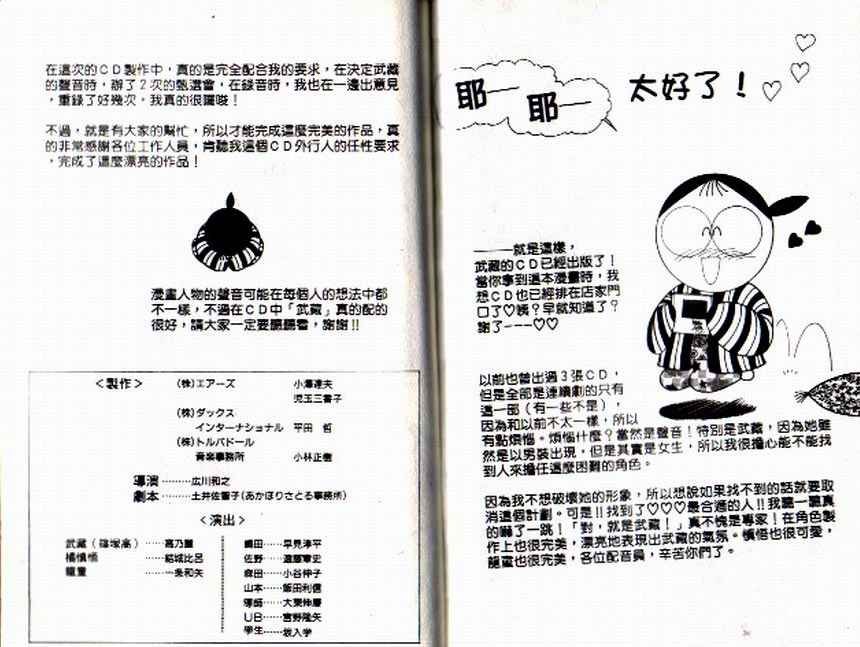 耶— 耶— 太好了！
———就是這樣，
武藏的ＣＤ已經出版了！
當你拿到這本漫畫時，我
想ＣＤ也已經排在店家門
口了♡咦？早就知道了？
謝了---♡♡
以前也曾出過３張ＣＤ，
但是全部是連續劇的只有
這一部（有一些不是），
因為和以前不太一樣，所以
有點煩惱。煩惱什麼？當然是聲音！特別是武藏，因為她雖
然是以男裝出現，但是其實是女生，所以我很擔心能不能找
到人來擔任這麼困難的角色。
因為我不想破壞她的形象，所以想說如果找不到的話就要取
消這個計劃。可是!!找到了♡♡♡最合適的人!!我聽一聽真
的嚇了一跳！「對，就是武藏！」真不愧是專家！在角色製
作上也很完美，漂亮地表現出武藏的氣氛。慎悟也很可愛，
龍童也很完美，各位配音員，辛苦你們了。
在這次的ＣＤ製作中，真的是完全配合我的要求，在決定武藏
的聲音時，辦了２次的甄選會，在錄音時，我也在一邊出意見
，重錄了好幾次，我真的很囉唆！
不過，就是有大家的幫忙，所以才能完成這麼完美的作品，真
的非常感謝各位工作人員，肯聽我這個ＣＤ外行人的任性要求
，完成了這麼漂亮的作品！
漫畫人物的聲音可能在每個人的想法中都
不一樣，不過在ＣＤ中「武藏」真的配的
很好，請大家一定要聽聽看，謝謝!!
＜製作＞ （株）エアーズ 小澤達夫
児玉三香子
（株）ダックス
インターナショナル 平田 哲
（株）トルバドール
音楽事務所 小林正樹
導演………広川和之
劇本………土井佐智子（あかほりさとる事務所）
＜演出＞
武藏（篠塚高）……高乃麗
橘慎悟………結城比呂
龍童………一条和矢
嶋田……早見淳平
佐野……遠藤章史
森田……小谷伸子
山本……飯田利信
導師……大栗伸慶
ＵＢ……宮野隆矢
學生……坂入学